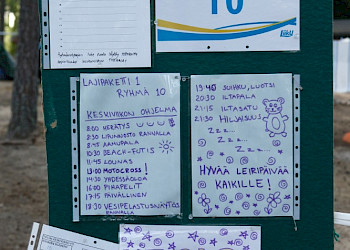 10
LAJIPAKETTI 1
RYHMÄ 10
KESKIVIIKON OHJELMA
8:00 HERÄTYS
8:30 LIPUNNOSTO RANNALLA
8:45 AAMUPALA
10:30 BEACH-FUTIS
11:45 LOUNAS
13:00 MOTOCROSS!
14:30 YHDESSÄOLOA
16:00 PIHAPELIT
17:15 PÄIVÄLLINEN
18:30 VESIPELASTUSNÄYTÖS
RANNALLA
19:40 SUIHKU, LUOTSI
20:30 ILTAPALA
21:15 ILTASATU
21:30 HILJAISUUS
ZZZ...
ZZZ...
ZZZ...
HYVÄÄ LEIRIPÄIVÄÄ
KAIKILLE!